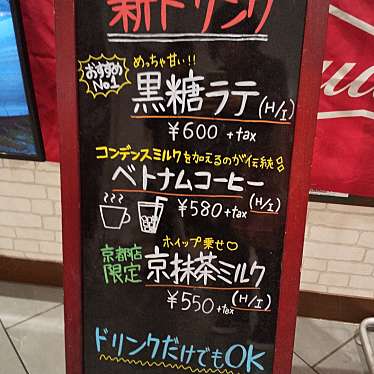 新ドリンク
おすすめ
No.1
めっちゃ甘い!!
黒糖ラテ(H/I)
¥600 +tax
コンデンスミルクを加えるのが伝統品
ベトナムコーヒー
¥580+tax (H/I)
京都店
限定
ホイップ乗せ♡
京抹茶ミルク
¥550+tax (H/I)
ドリンクだけでもOK